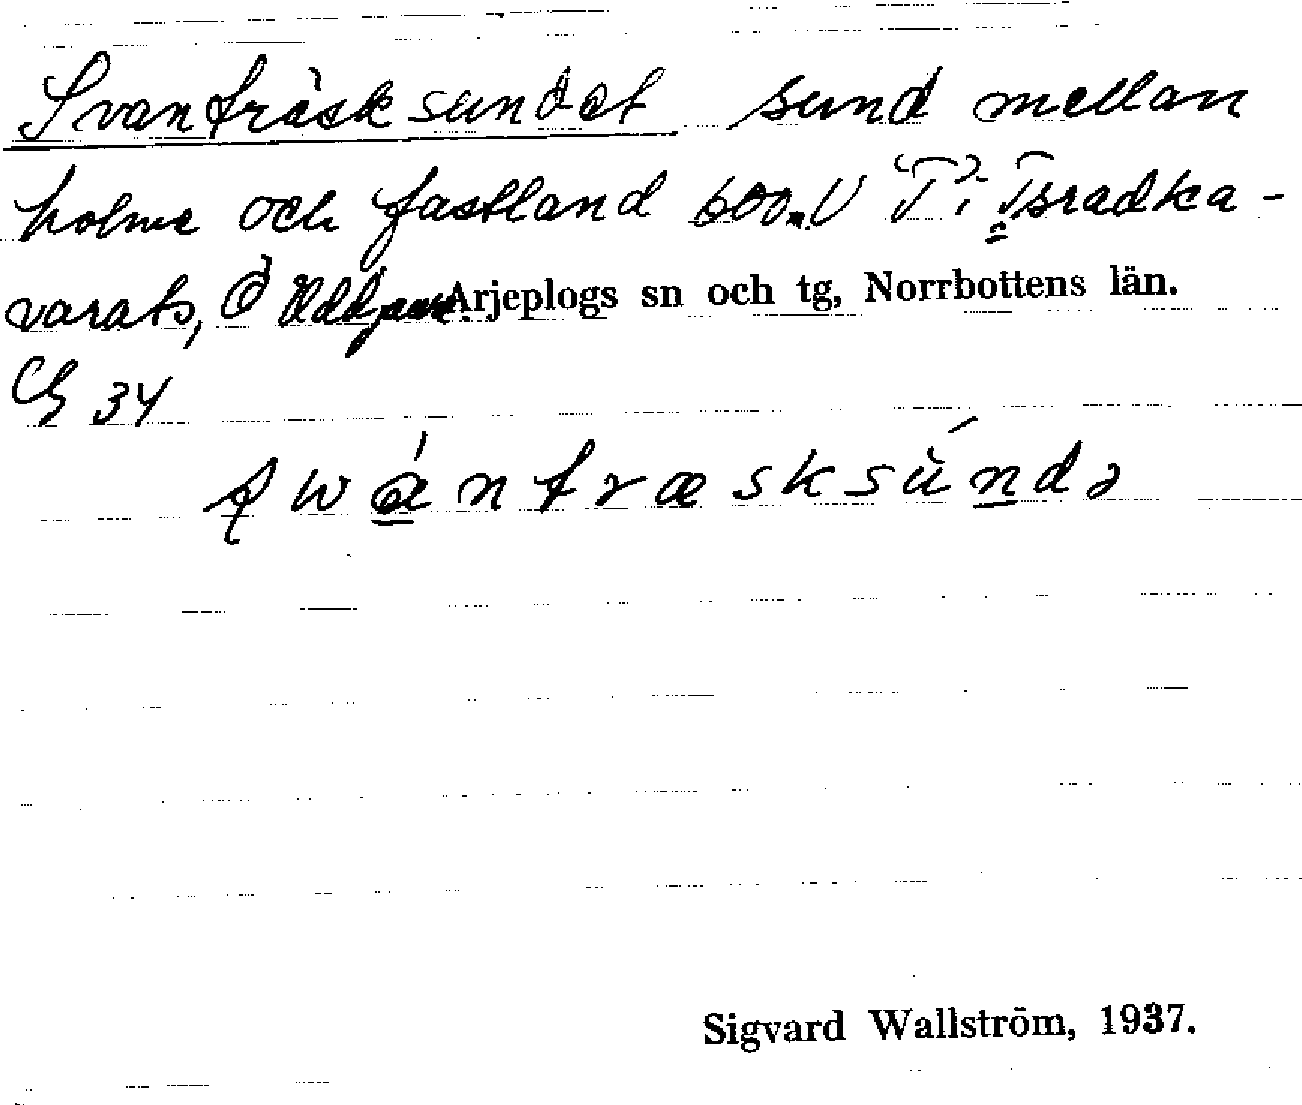 Svanträsksundet sund mellan
holme och fastland 600 m V T i Tsradka-
varats, Ö Uddjaur Arjeplogs sn och tg, Norrbottens län.
34
swántræsksùndə
Sigvard Wallström, 1937.